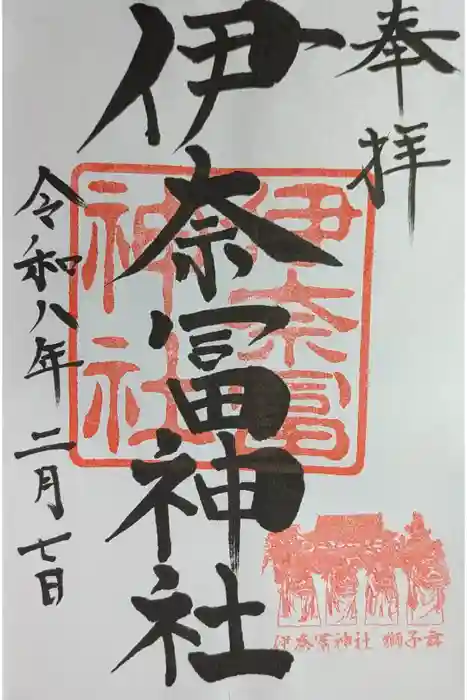 奉拝
伊奈冨神社
伊奈冨
神社
令和八年二月七日
伊奈冨神社 獅子舞